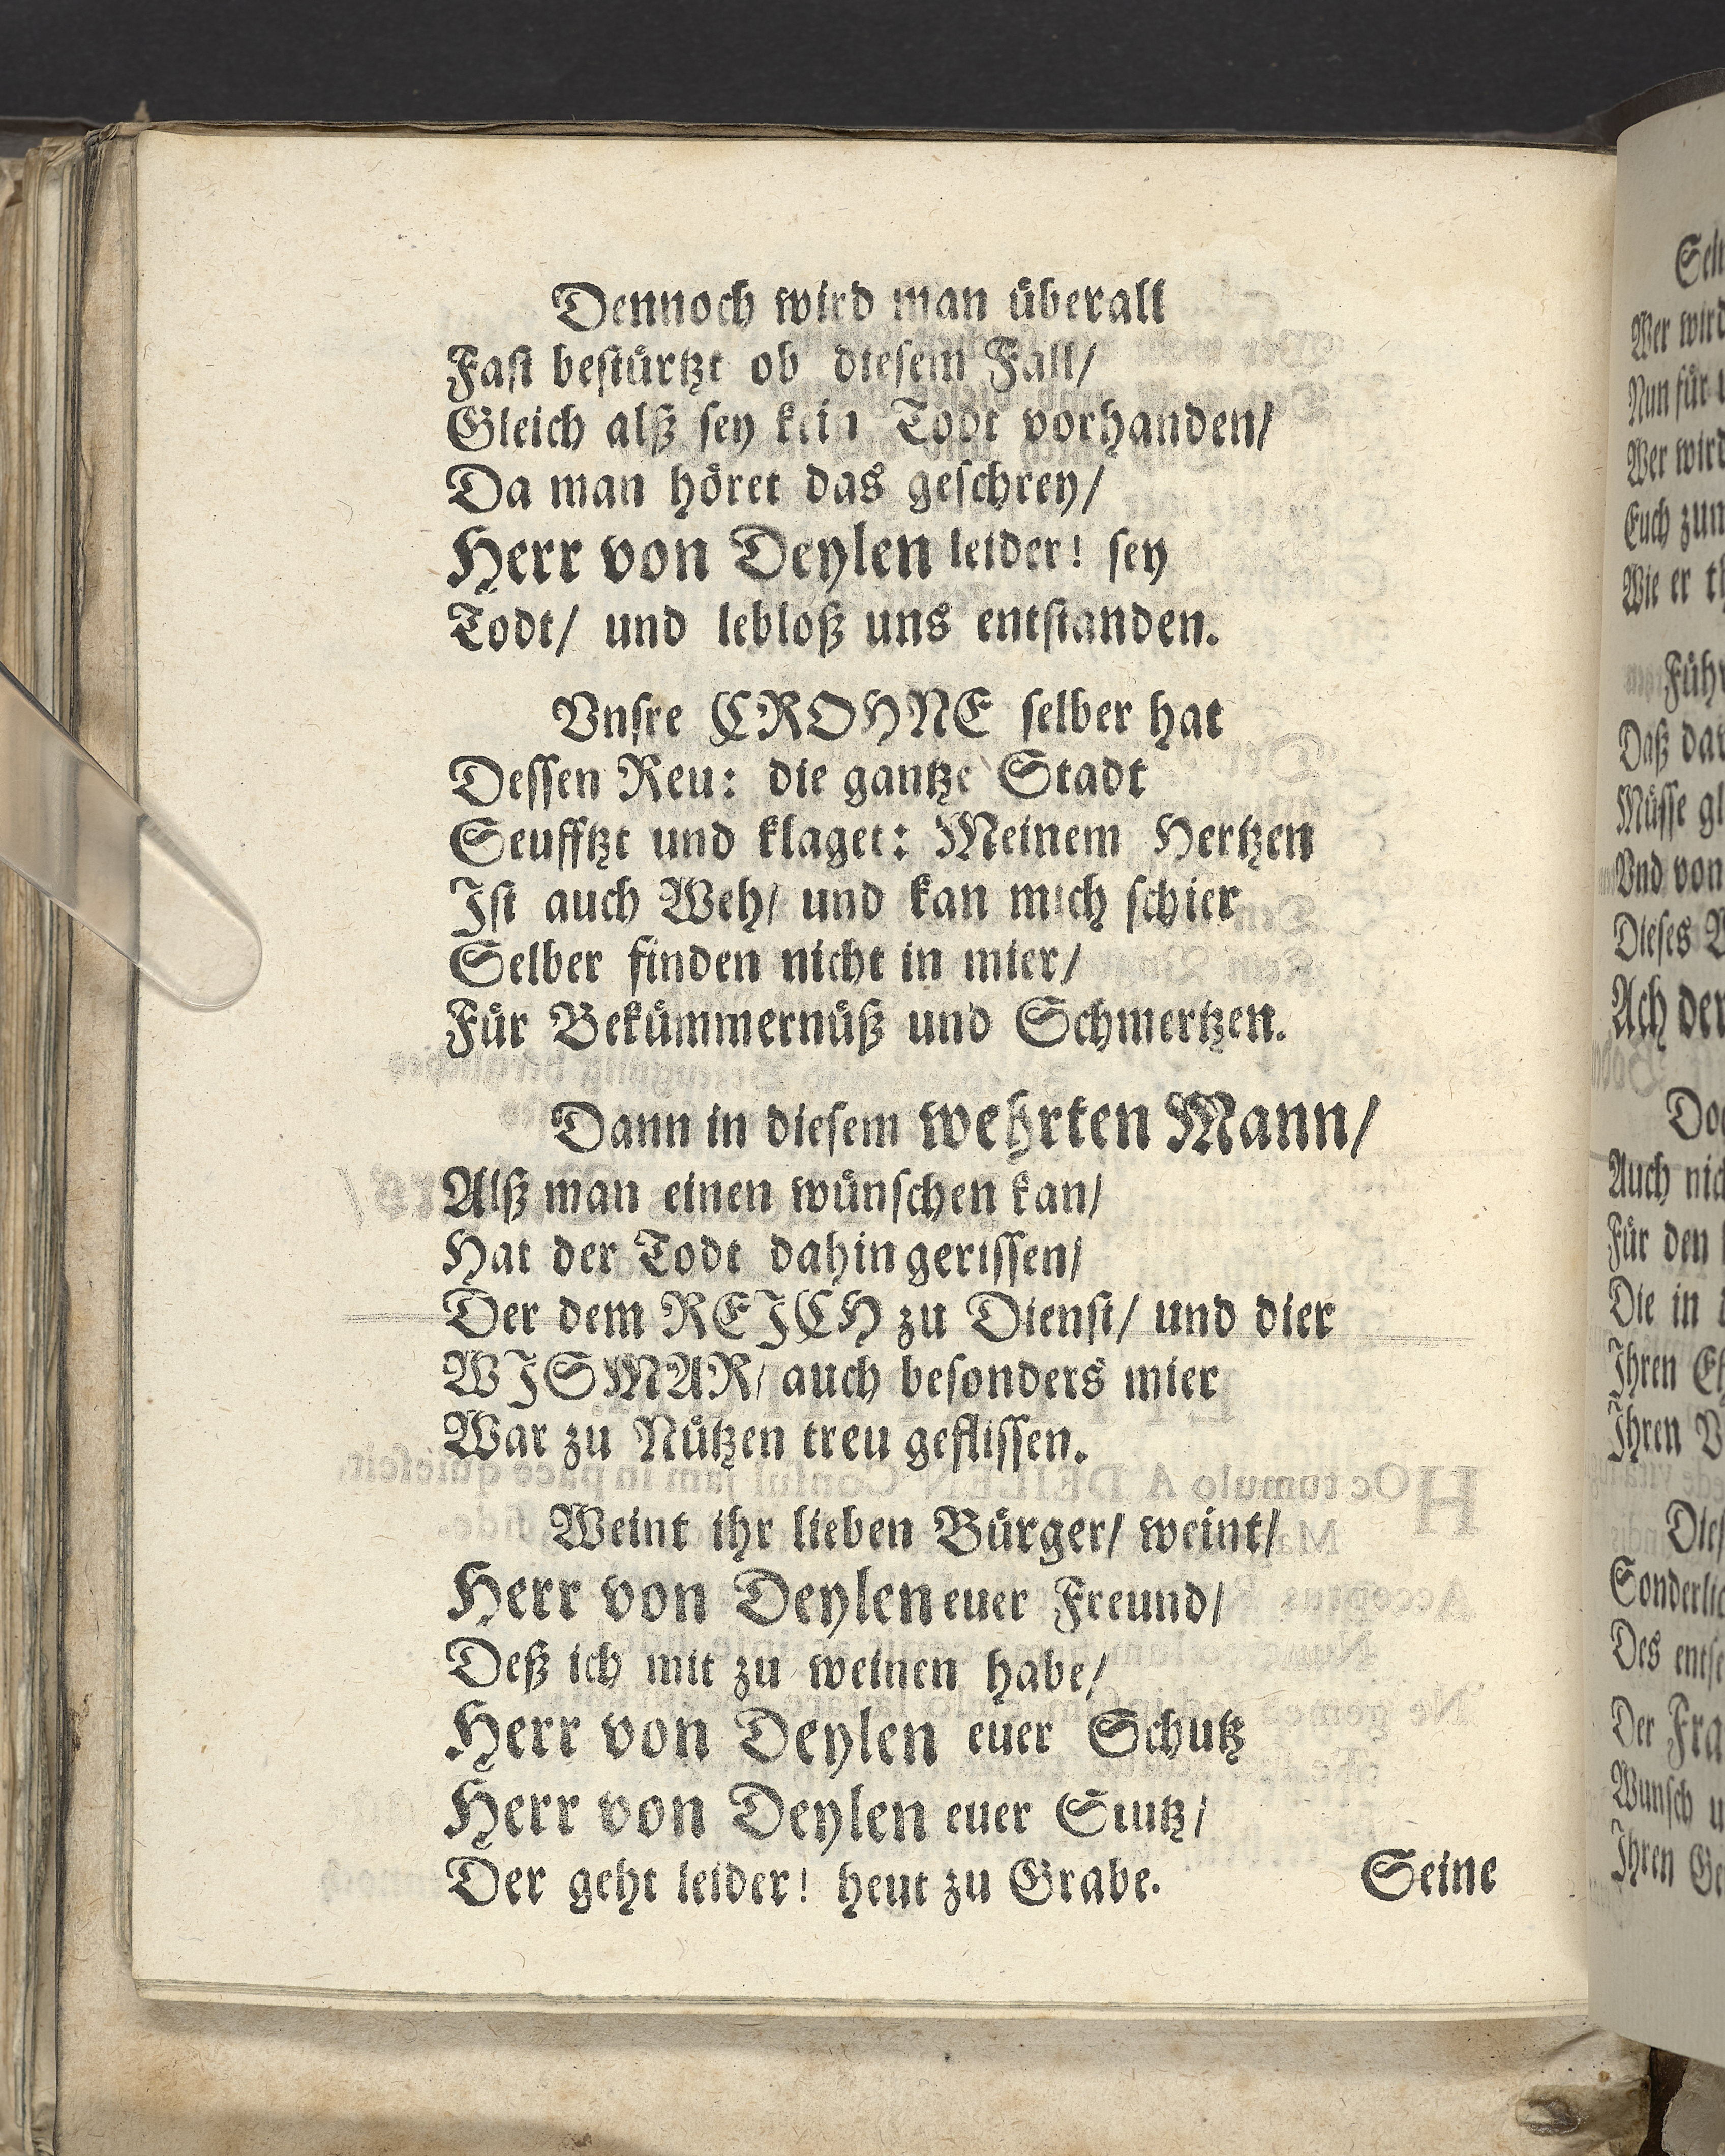 Dennoch wird man überall
Fast bestürtzt ob diesem Fall/
Gleich alß sey kein Todt vorhanden/
Da man höret das geschrey/
Herr von Deylen leider! sey
Todt/ und lebloß uns entstanden.
Vnsre CROHNE selber hat
Dessen Reu: die gantze Stadt
Seufftzt und klaget: Meinem Hertzen
Ist auch Weh/ und kan mich schier
Selber finden nicht in mier/
Für Bekümmernüß und Schmertzen.
Dann in diesem wehrten Mann/
Alß man einen wünschen kan/
Hat der Todt dahin gerissen/
Der dem REICH zu Dienst/ und dier
WISMAR/ auch besonders mier
War zu Nützen treu geflissen.
Weint ihr lieben Bürger/ weint/
Herr von Deylen euer Freund/
Deß ich mit zu weinen habe/
Herr von Deylen euer Schutz
Herr von Deylen euer Stutz/
Der geht leider! heut zu Grabe.
Seine
Wer wird
Nun für
Wer wird
Euch zum
Wie er
Daß
Müsse
Vnd von
Dieses
Ach
Auch
Für den
Die in
Ihren
Ihren
Des
Der
Wunsch
Ihren